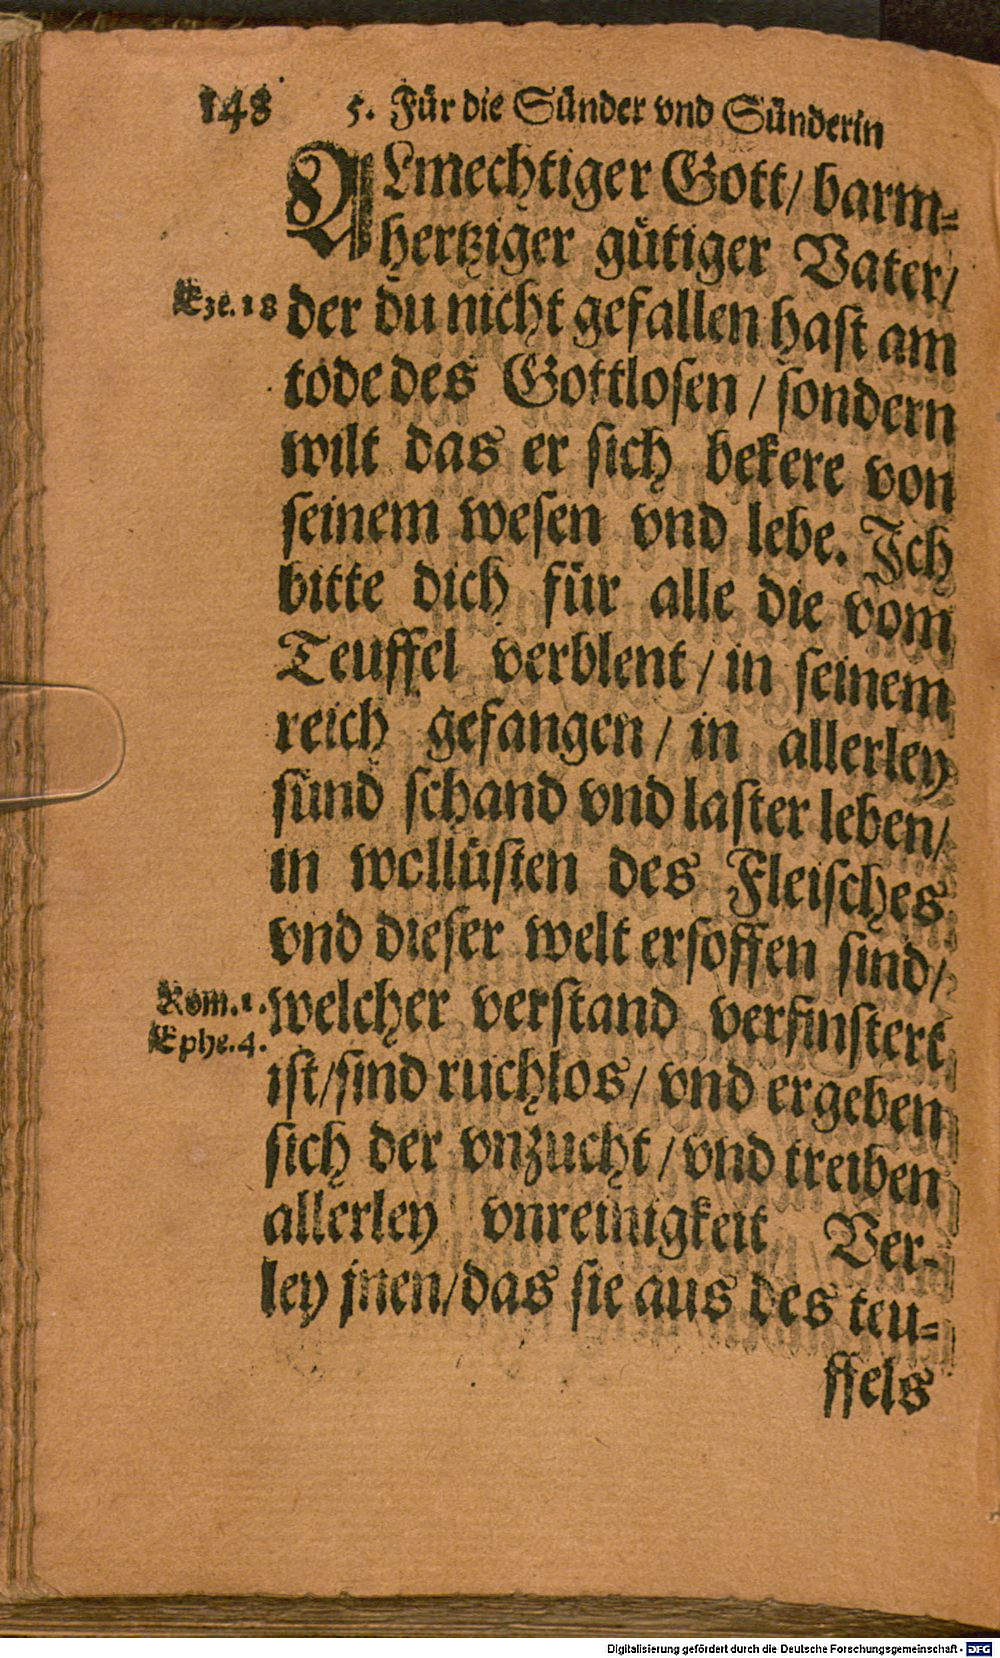 148 5. Für die Sünder vnd Sünderin
ALmechtiger Gott/ barm=
hertziger gütiger Vater/
Eze. 18 der du nicht gefallen hast am
tode des Gottlosen / sondern
wilt das er sich bekere von
seinem wesen vnd lebe. Ich
bitte dich für alle die vom
Teuffel verblent / in seinem
reich gefangen / in allerley
sünd schand vnd laster leben/
in wollüsten des Fleisches
vnd dieser welt ersoffen sind/
Rom. 1. welcher verstand verfinstert
Ephe. 4.
ist/sind ruchlos/ vnd ergeben
sich der vnzucht / vnd treiben
allerley vnreinigkeit Ver-
ley jnen/das sie aus des teu=
ffels
Digitalisierung gefördert durch die Deutsche Forschungsgemeinschaft - DFG